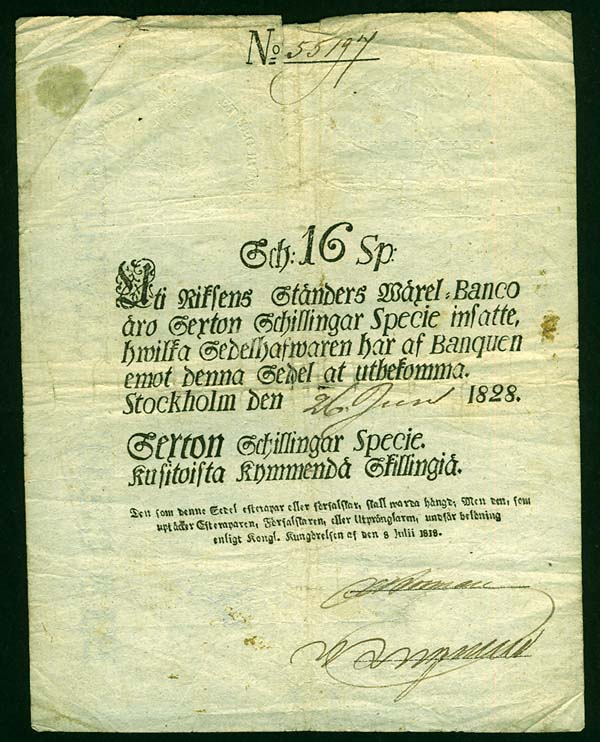 No 55197
Sch: 16 Sp:
Uti Riksens Ständers Wäxel-Banco
äro Sexton Schillingar Specie insatte,
hwilka Sedelhafwaren har af Banquen
emot denna Sedel at utbekomma.
Stockholm den 26 Juni 1828.
Sexton Schillingar Specie.
Kusitoista Kymmendä Skillingiä.
Den som denne Sedel efterapar eller förfalskar, skall warda hängd; Men den, som
uptäcker Efteraparen, Förfalskaren, eller Utprånglaren, undfår belöning
enligt Kongl. Kungörelsen af den 8 Julii 1818.